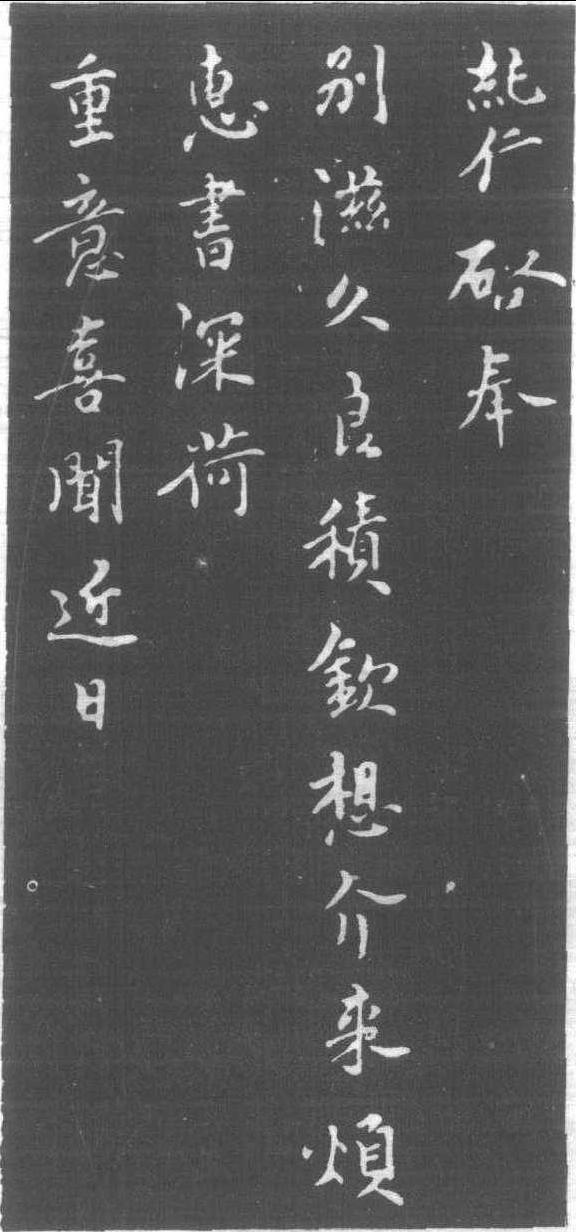 純仁啓奉
別滋久良積欽想介来煩
惠書深荷
重意喜聞近日